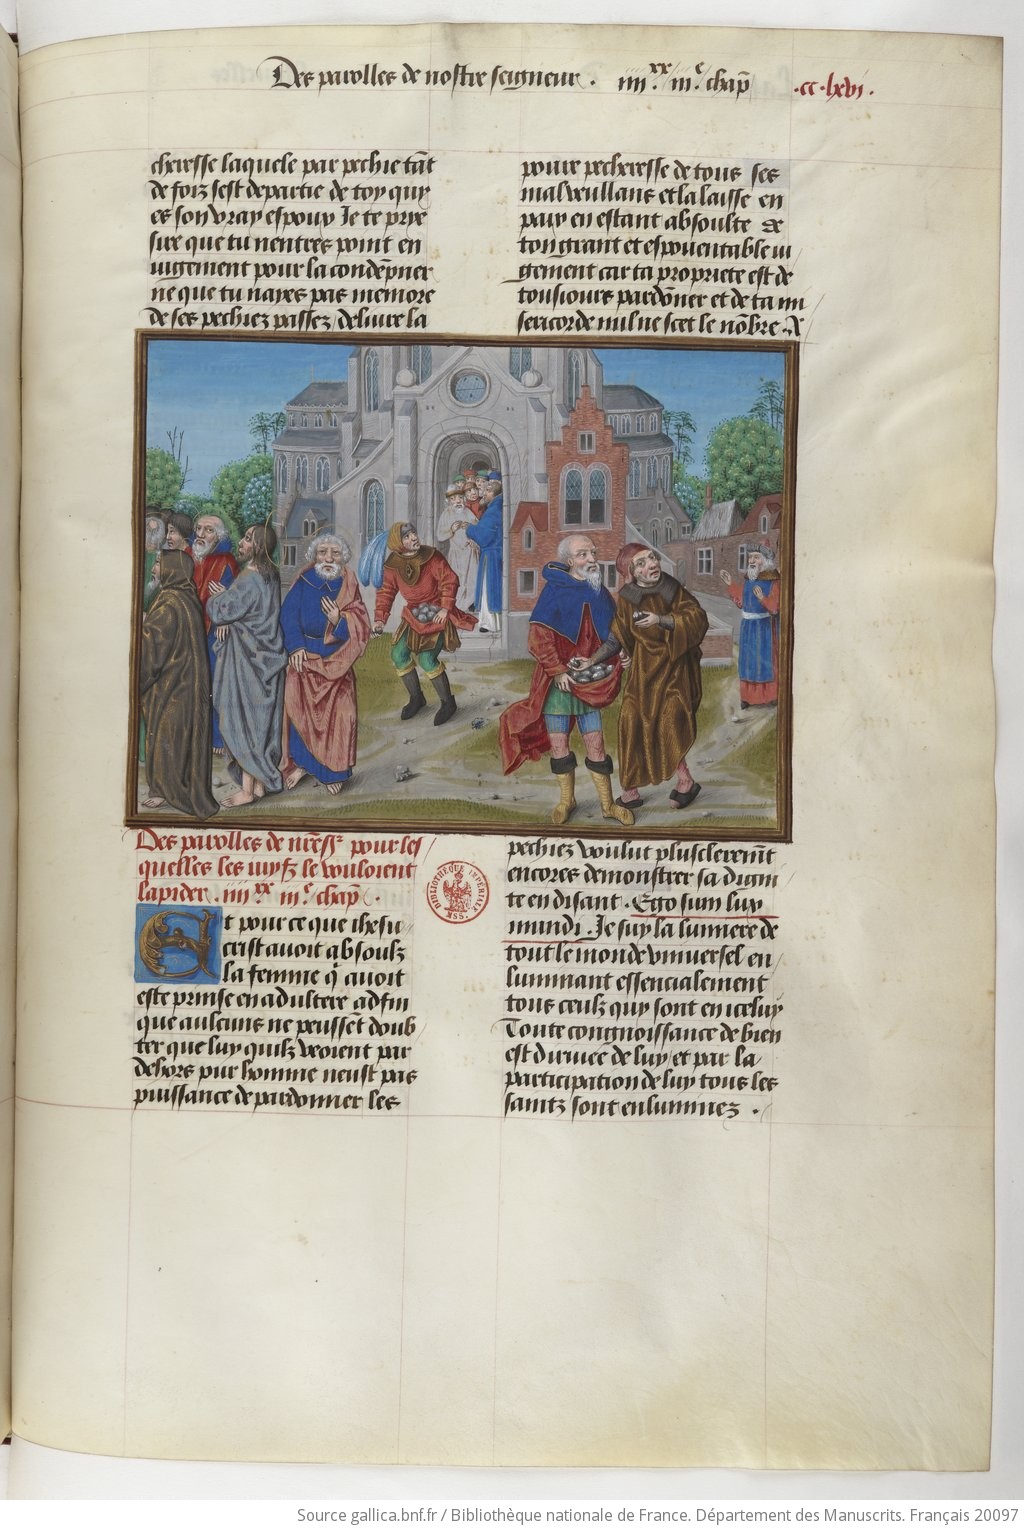 Des parolles de nostre seigneur . iiii.xx iii.e chap̄ .cc.lxvi.
cheresse laquele par pechie tāt
de foiz sest departie de toy quy
es son vray espoux Je te prie
sire que tu nentres point en
iugement pour la condēpner
ne que tu nayes pas memore
de ses pechiez passez / deliure la
poure pecheresse de tous ses
malveullans et la laisse en
paix en estant absoulte de
ton grant et espouentable iu
gement car ta propriete est de
tousiours pardōner et de ta mi
sericorde nul ne scet le nōbre
Des parolles de nr̄e sr̄ pour les
quelles les iuyfz le vouloient
lapider . iiii.xx iii.e chap̄ .
Et pour ce que ihesu
crist avoit absoulz
la femme q̄ avoit
este prinse en adultere adfin
que aulcuns ne peussēt doub
ter que luy quilz veoient par
dehors pur homme neust pas
puissance de pardonner les
pechiez voulut plus cleremēt
encores demonstrer sa digni
te en disant . Ego sum lux
mundi . Je suy la lumiere de
tout le monde vniuersel en /
luminant essencialement
tous ceulz quy sont en iceluy
Toute congnoissance de bien
est diriuee de luy et par la
participation de luy tous les
saintz sont enluminez .
BIBLIOTHÈQUE IMPÉRIALE MSS.
Source gallica.bnf.fr / Bibliothèque nationale de France. Département des Manuscrits. Français 20097